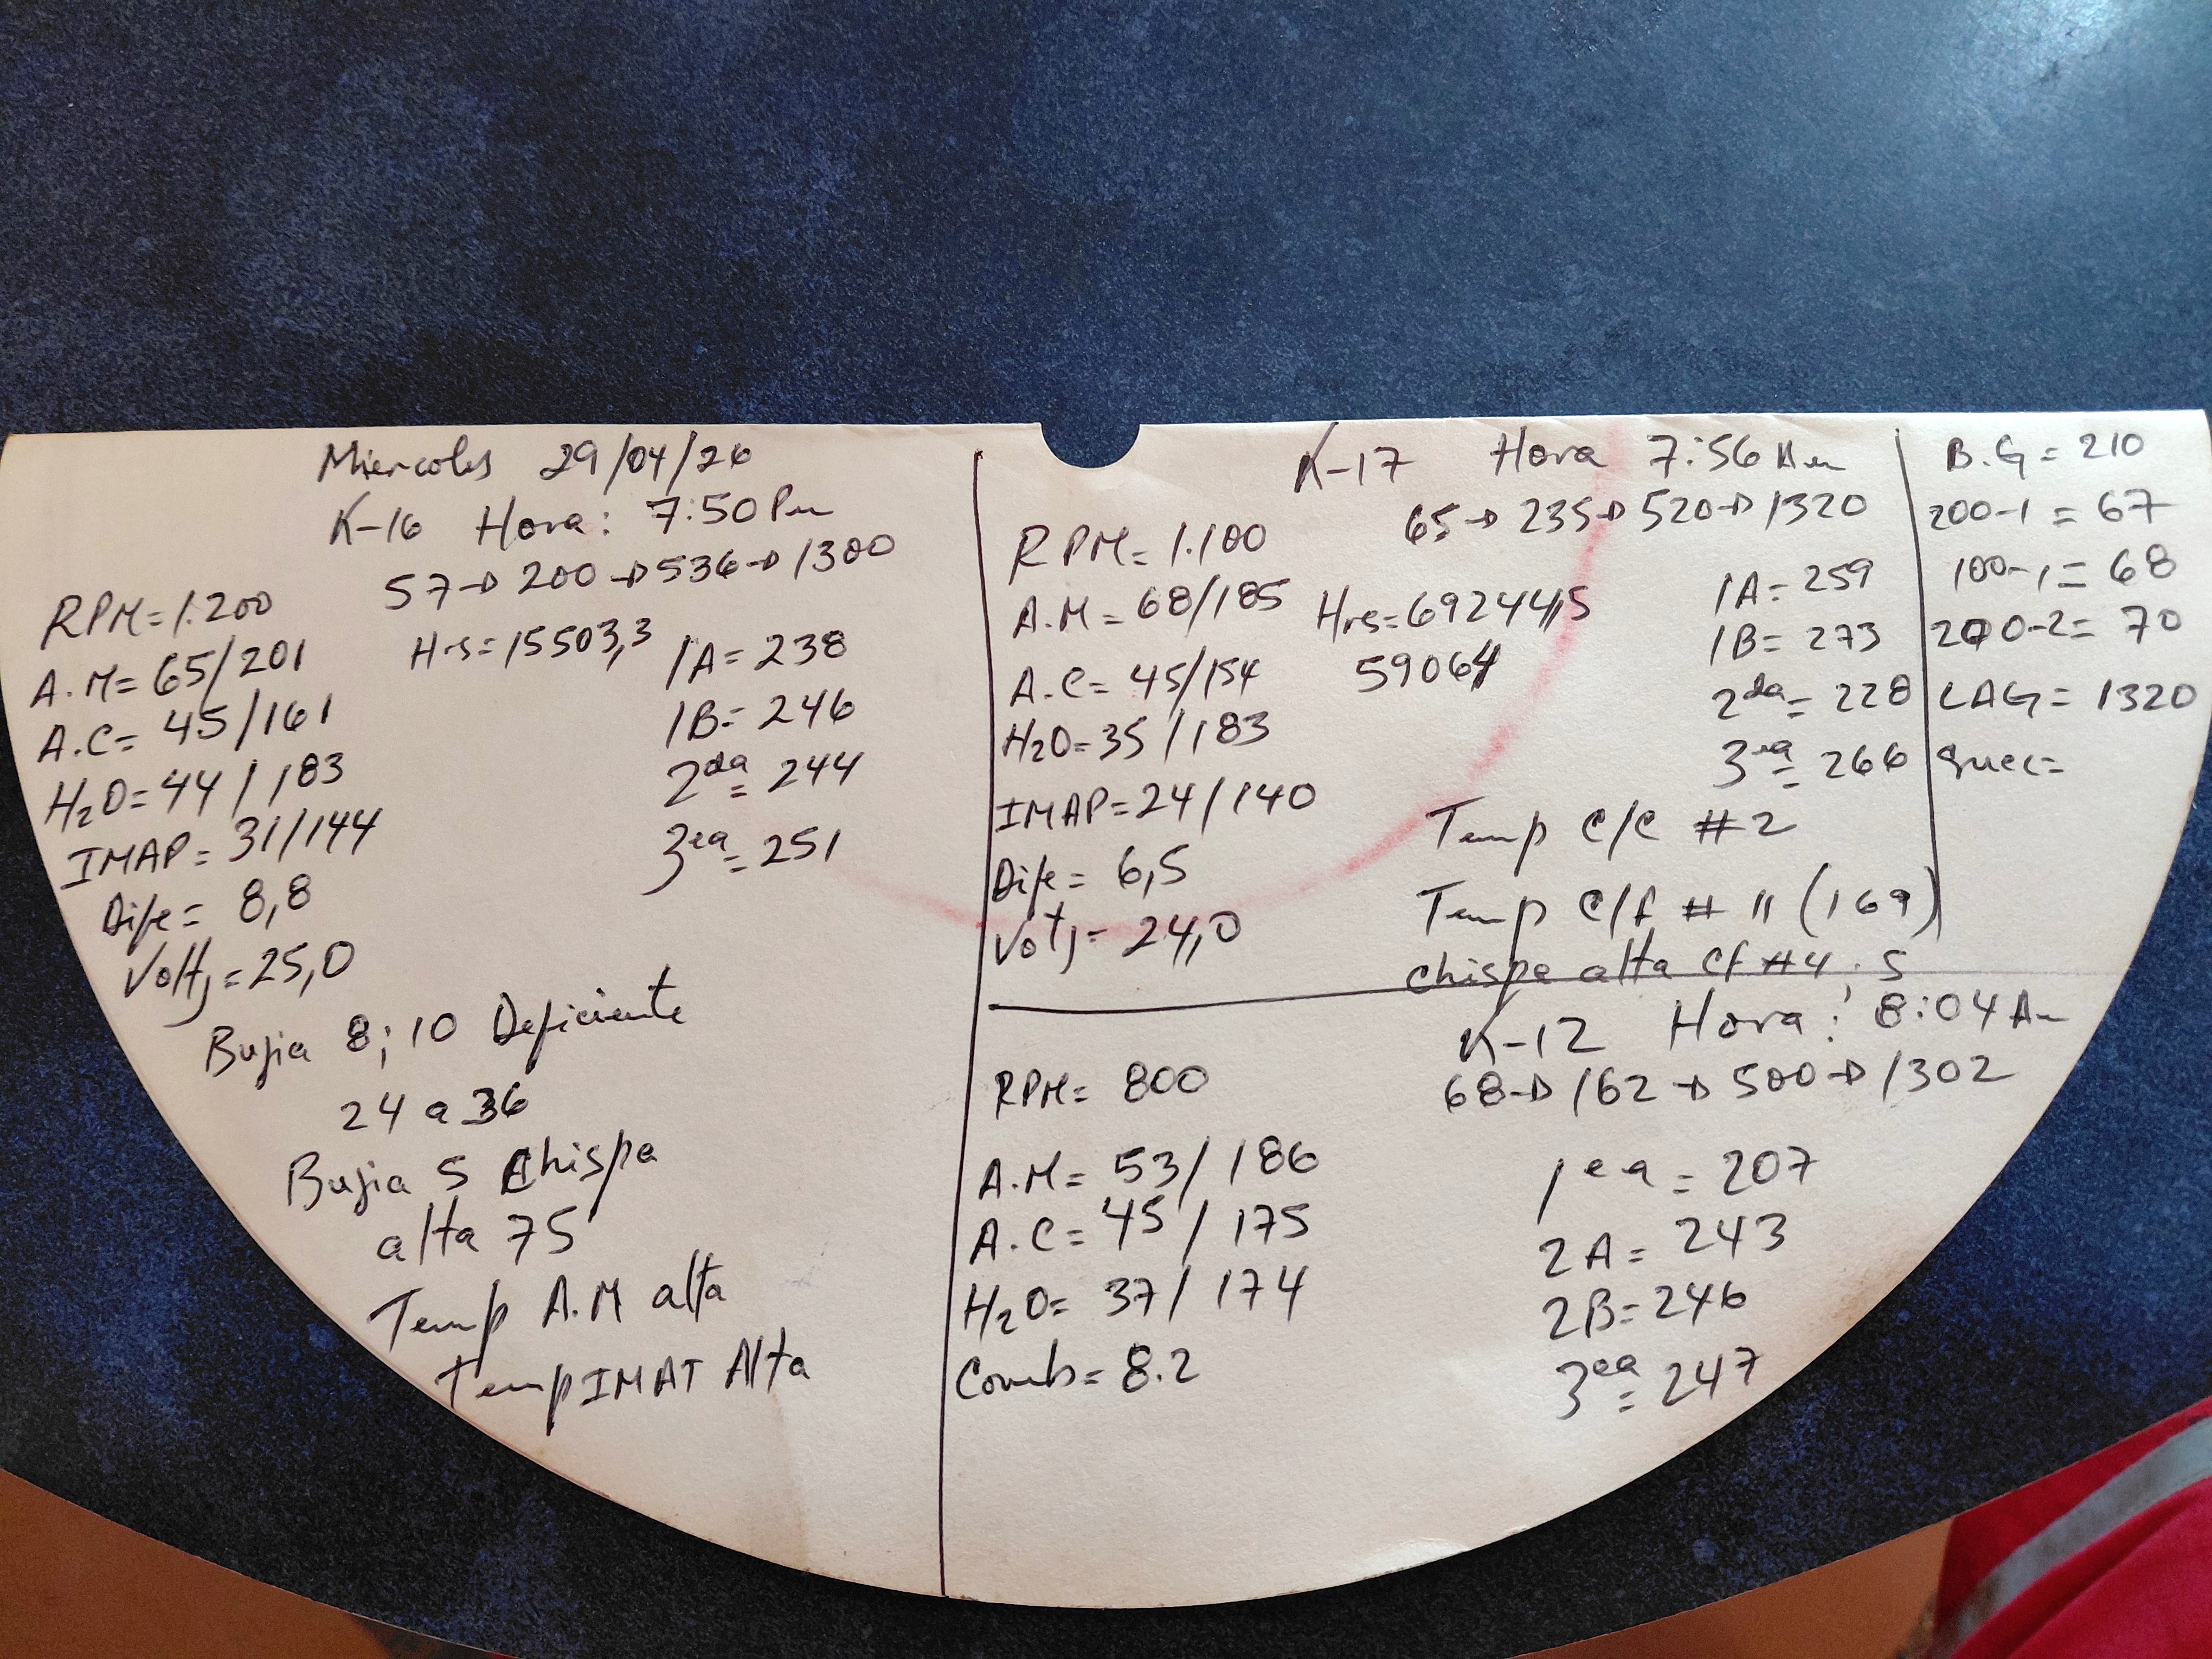 Miercoles 29/04/26
K-16 Hora: 7:50 Pm
57→200→536→1300
RPM=1.200
Hrs=15503,3
A.M=65/201
A.C=45/161
H2O=44/183
IMAP=31/144
Dife=8,8
Voltj=25,0
1A=238
1B=246
2da=244
3ea=251
Bujia 8;10 Deficiente
24 a 36
Bujia 5 Chispa
alta 75
Temp A.M alta
Temp IMAT Alta
K-17 Hora 7:56 Am
65→235→520→1320
RPM=1.100
A.M=68/185
Hrs=692441,5
59064
A.C=45/154
H2O=35/183
IMAP=24/140
Dife=6,5
Votj=24,0
1A=259
1B=273
2da=228
3ea=266
Temp C/C #2
Temp C/f #11 (169)
Chispa alta Cf #4.5
B.G=210
200-1=67
100-1=68
200-2=70
LAG=1320
Succ=
K-12 Hora: 8:04 Am
68→162→500→1302
RPM=800
A.M=53/186
A.C=45/175
H2O=37/174
Comb=8.2
1ea=207
2A=243
2B=246
3ea=247